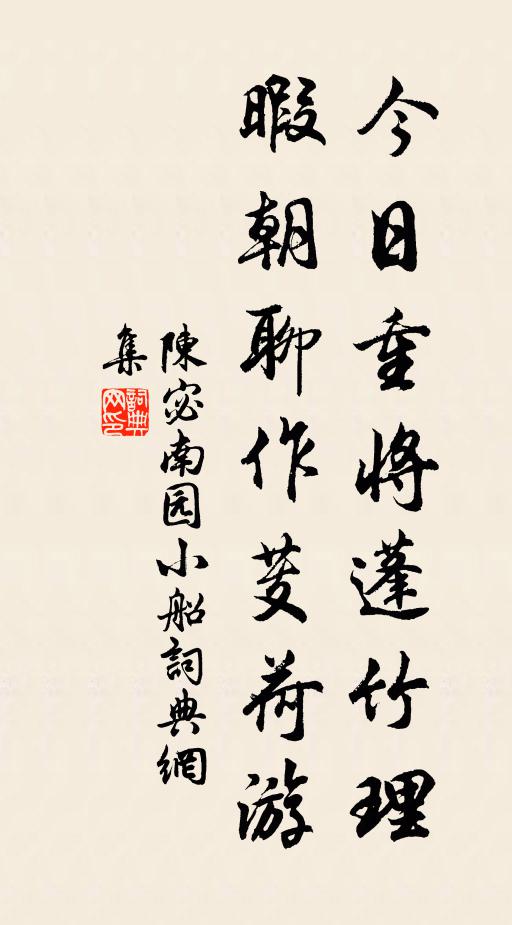 今日重将蓬竹理
暇朝聊作芰荷游
陳宓南园小船詞典網
集
詞典網印